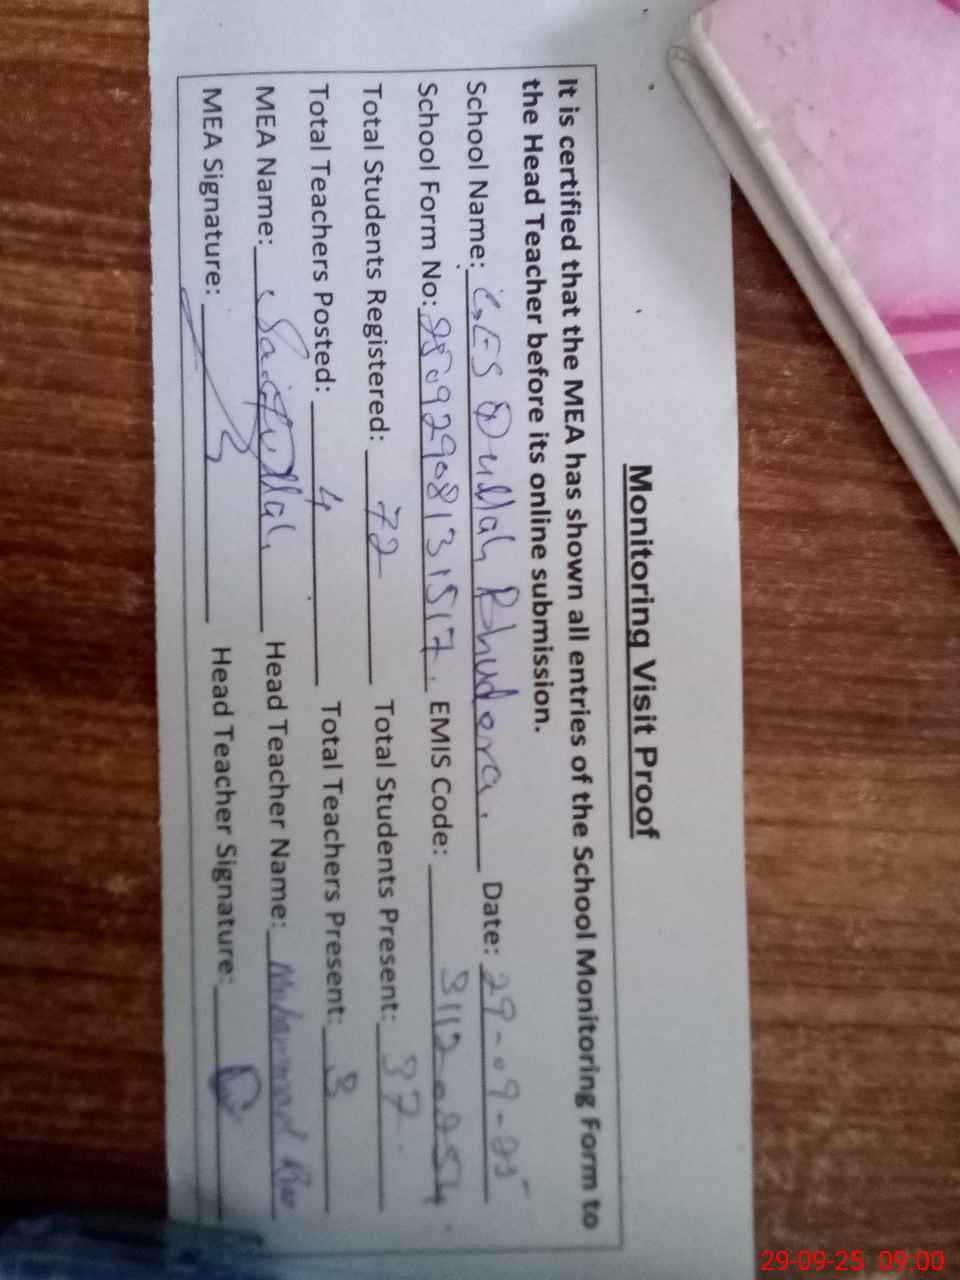 Monitoring Visit Proof
It is certified that the MEA has shown all entries of the School Monitoring Form to
the Head Teacher before its online submission.
School Name: GES Dullah Bhudera. Date: 29-09-25
School Form No: EMIS Code:
Total Students Registered: 72 Total Students Present: 37
Total Teachers Posted: 4 Total Teachers Present: 3
MEA Name: Saifullah Head Teacher Name: Muhammad
MEA Signature: Head Teacher Signature:
29-09-25 09:00